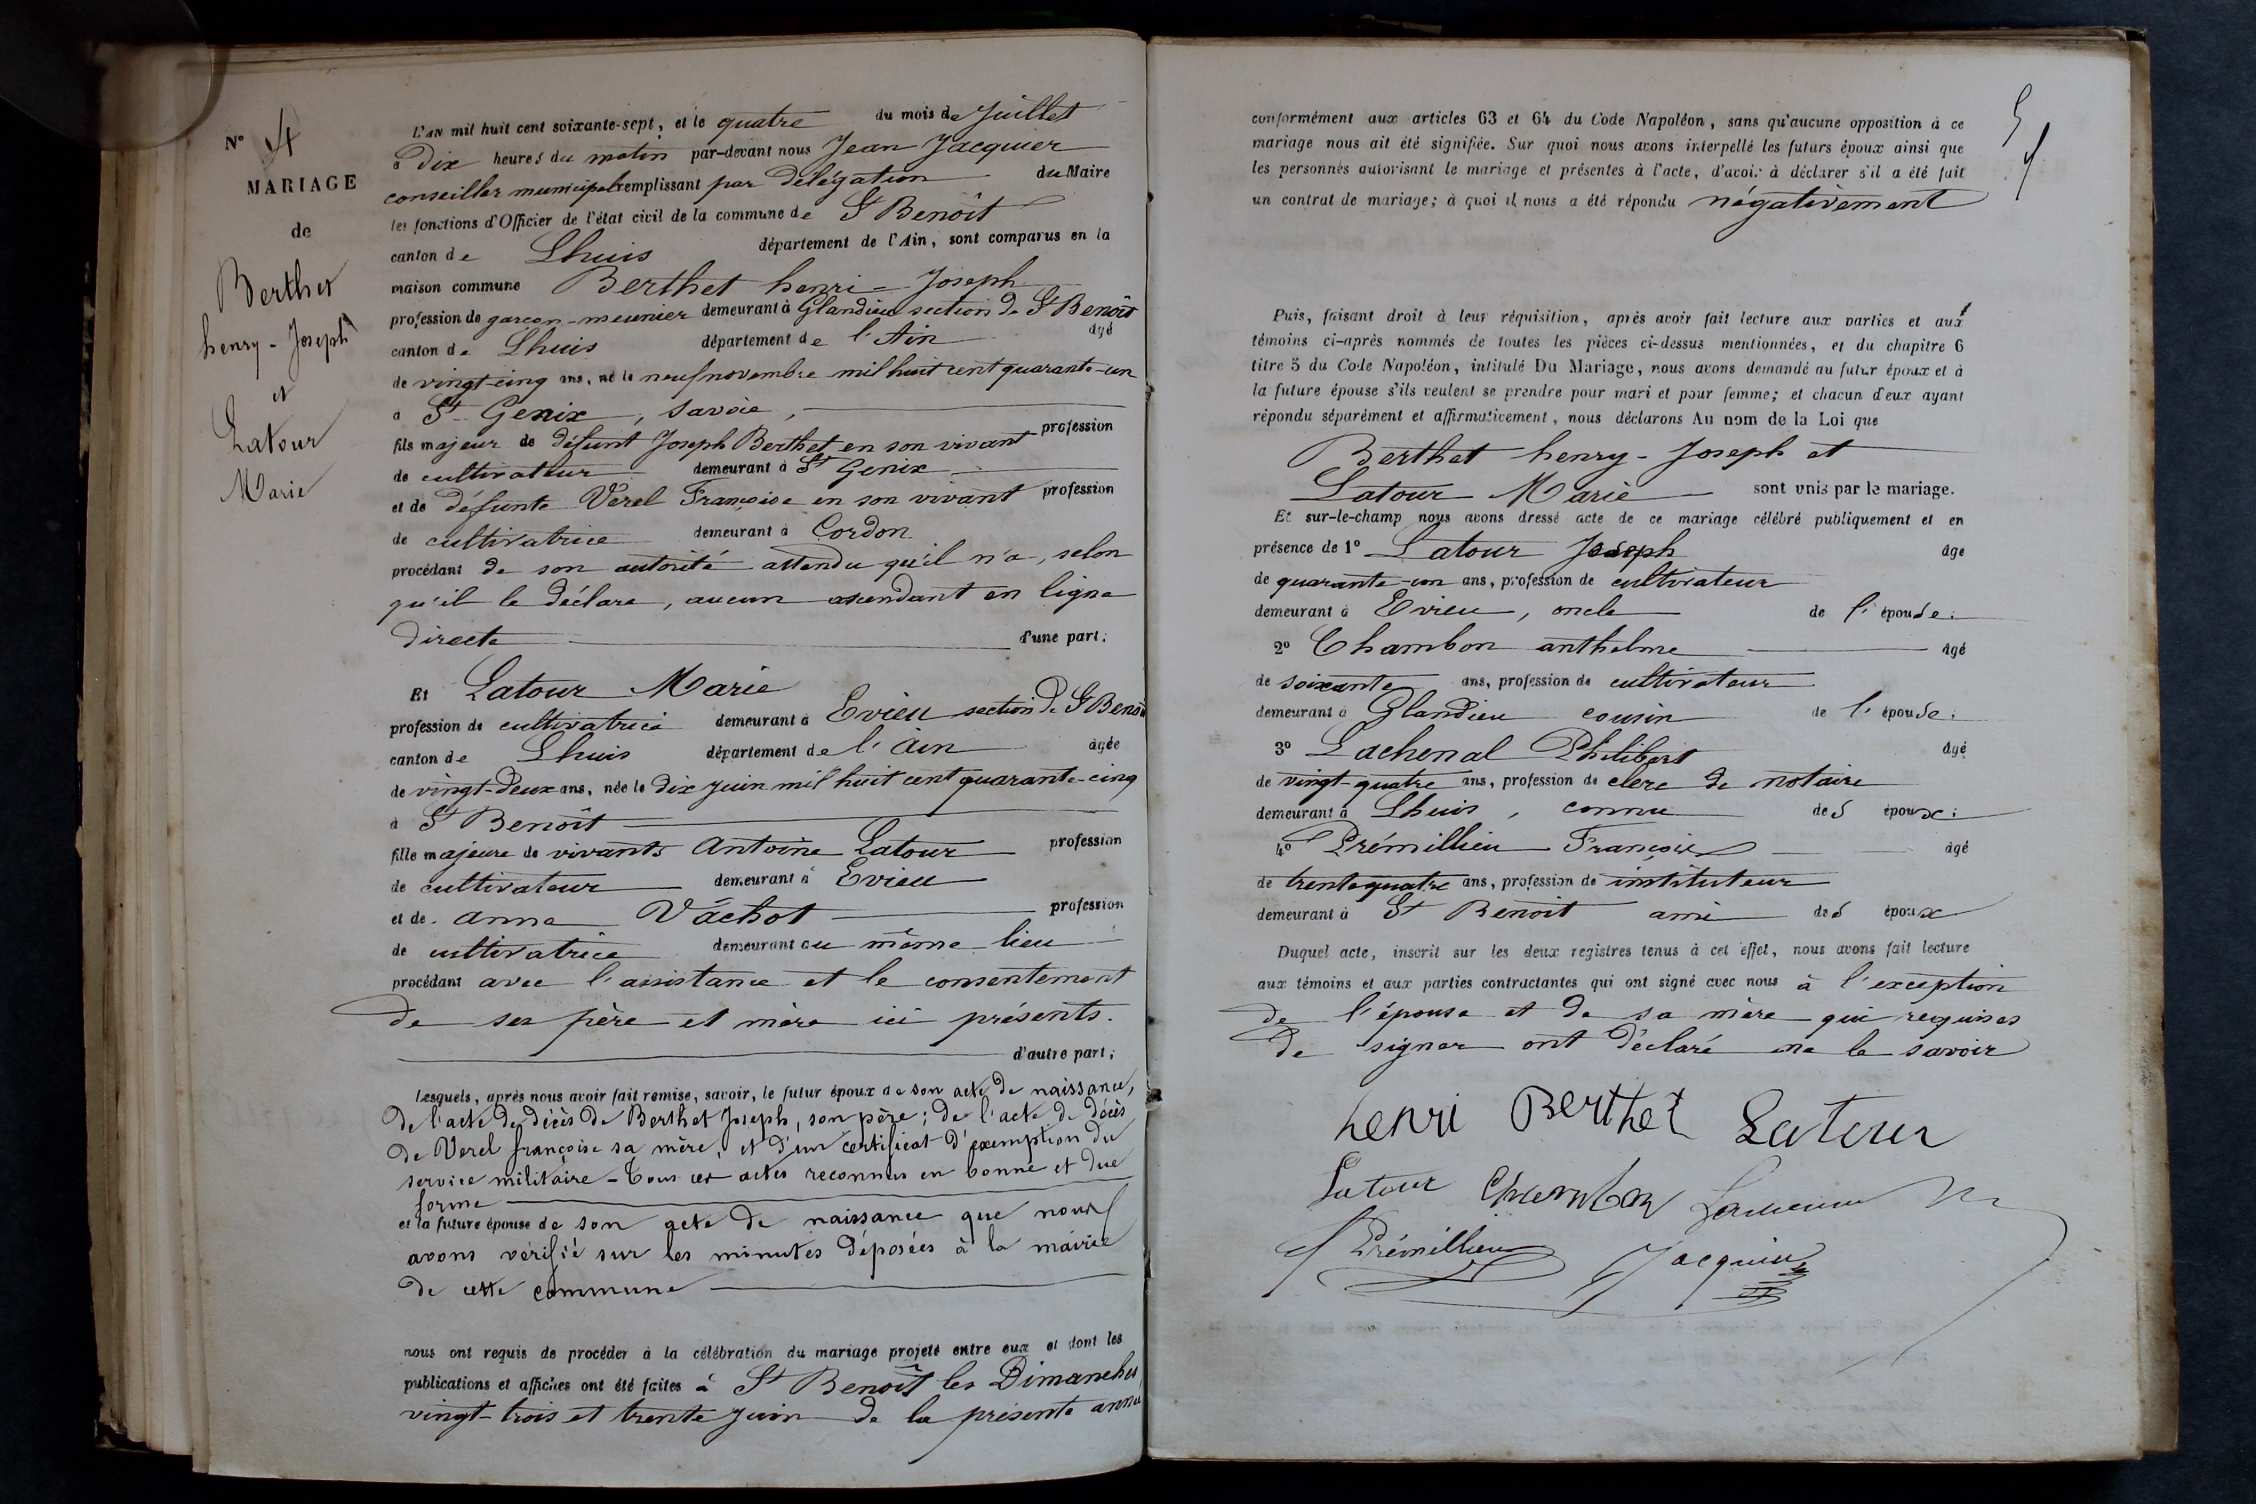 N° 4
MARIAGE
de
Berthet
henry - Joseph
et
Latour
Marie
L'AN mil huit cent soixante-sept, et le quatre du mois de Juillet
à dix heures du matin par-devant nous Jean Jacquier
conseiller municipal remplissant par délégation du Maire
les fonctions d'Officier de l'état civil de la commune de St Benoît
canton de Lhuis département de l'Ain, sont comparus en la
maison commune Berthet henri - Joseph
profession de garçon-meunier demeurant à Glandieu section de St Benoît
canton de Lhuis département de l'Ain âgé
de vingt-cinq ans, né le neuf novembre mil huit cent quarante-un
à St Genix, Savoie,
fils majeur de défunt Joseph Berthet en son vivant profession
de cultivateur demeurant à St Genix
et de défunte Verel Françoise en son vivant profession
de cultivatrice demeurant à Cordon
procédant de son autorité attendu qu'il n'a, selon
qu'il le déclare, aucun ascendant en ligne
directe d'une part;
Et Latour Marie
profession de cultivatrice demeurant à Evieu section de St Benoît
canton de Lhuis département de l'Ain âgée
de vingt-deux ans, née le dix juin mil huit cent quarante-cinq
à St Benoît
fille majeure de vivants Antoine Latour profession
de cultivateur demeurant à Evieu
et de anne Vachot profession
de cultivatrice demeurant au même lieu
procédant avec l'assistance et le consentement
de ses père et mère ici présents.
d'autre part;
Lesquels, après nous avoir fait remise, savoir, le futur époux de son acte de naissance,
de l'acte de décès de Berthet Joseph, son père; de l'acte de décès
de Verel françoise sa mère, et d'un certificat d'exemption du
service militaire - Tous ces actes reconnus en bonne et due
forme
et la future épouse de son acte de naissance que nous
avons vérifié sur les minutes déposées à la mairie
de cette commune
nous ont requis de procéder à la célébration du mariage projeté entre eux et dont les
publications et affiches ont été faites à St Benoît les Dimanches
vingt-trois et trente juin de la présente année
conformément aux articles 63 et 64 du Code Napoléon, sans qu'aucune opposition à ce
mariage nous ait été signifiée. Sur quoi nous avons interpellé les futurs époux ainsi que
les personnes autorisant le mariage et présentes à l'acte, d'avoir à déclarer s'il a été fait
un contrat de mariage; à quoi il nous a été répondu négativement
Puis, faisant droit à leur réquisition, après avoir fait lecture aux parties et aux
témoins ci-après nommés de toutes les pièces ci-dessus mentionnées, et du chapitre 6
titre 5 du Code Napoléon, intitulé Du Mariage, nous avons demandé au futur époux et à
la future épouse s'ils veulent se prendre pour mari et pour femme; et chacun d'eux ayant
répondu séparément et affirmativement, nous déclarons Au nom de la Loi que
Berthet henry - Joseph et
Latour Marie sont unis par le mariage.
Et sur-le-champ nous avons dressé acte de ce mariage célébré publiquement et en
présence de 1° Latour Joseph âgé
de quarante-un ans, profession de cultivateur
demeurant à Evieu, oncle de l'épouse;
2° Chambon anthelme âgé
de soixante ans, profession de cultivateur
demeurant à Glandieu cousin de l'épouse;
3° Lachenal Philibert âgé
de vingt-quatre ans, profession de clerc de notaire
demeurant à Lhuis, connu des époux;
4° Prémillieu François âgé
de trente quatre ans, profession de instituteur
demeurant à St Benoit ami des époux
Duquel acte, inscrit sur les deux registres tenus à cet effet, nous avons fait lecture
aux témoins et aux parties contractantes qui ont signé avec nous à l'exception
de l'épouse et de sa mère qui requises
de signer ont déclaré ne le savoir
henri Berthet Latour
Latour Chambon
Prémillieu Jacquier